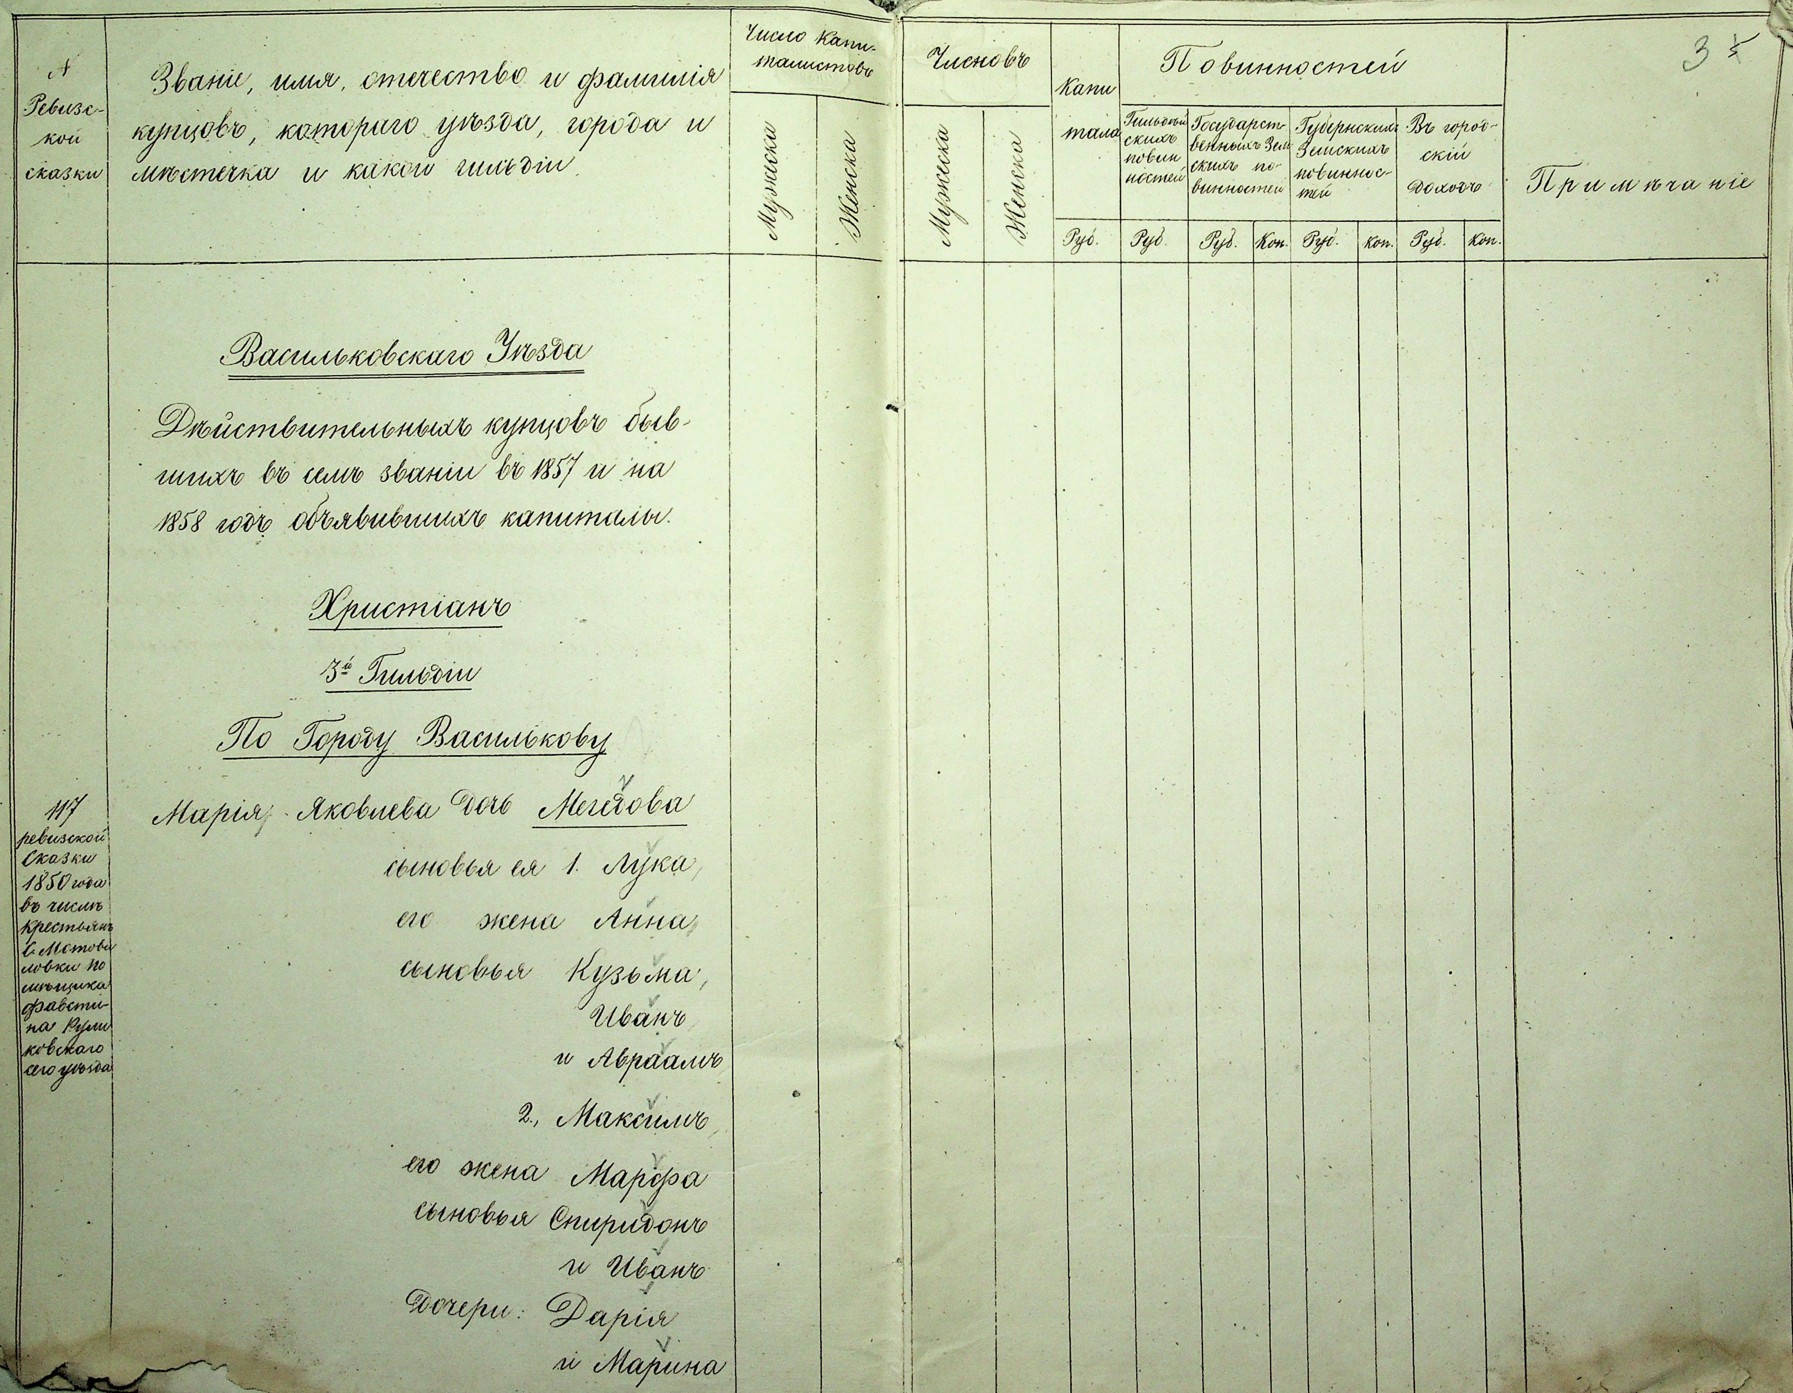 N
Ревизс-
кой
сказки
Званіе, имя, отчество и фамилія
купцовъ, котораго уѣзда, города и
мѣстечка и какой гильдіи
Число Капи-
талистовъ
Мужеска
Женска
Членовъ
Мужеска
Женска
Капи
тала
Руб.
Повинностей
скихъ
повин
ностей
Руб.
Государст-
венныхъ Зем
скихъ по-
винностей
Руб. Коп.
Губернскихъ
Земскихъ
повиннос-
тей
Руб. Коп.
Въ город-
скій
доходъ
Руб. Коп.
Примѣчаніе
3
Васильковскаго Уѣзда
Дѣйствительныхъ купцовъ быв-
шихъ въ семъ званіи въ 1857 и на
1858 годъ объявившихъ капиталы.
Христіанъ
3й Гильдіи
По Городу Василькову
117
ревизской
Сказки
1850 года
въ числѣ
крестьянъ
с. Мотови
ловки по
мѣщика
Фавсти-
на Рули
ковскаго
сего уѣзда
Марія Яковлева Дочь
сыновья ея 1. Лука,
его жена Анна,
сыновья Кузьма,
Иванъ,
и Авраамъ,
2., Максимъ,
его жена Марфа
сыновья Спиридонъ
и Иванъ
Дочери: Дарія
и Марина